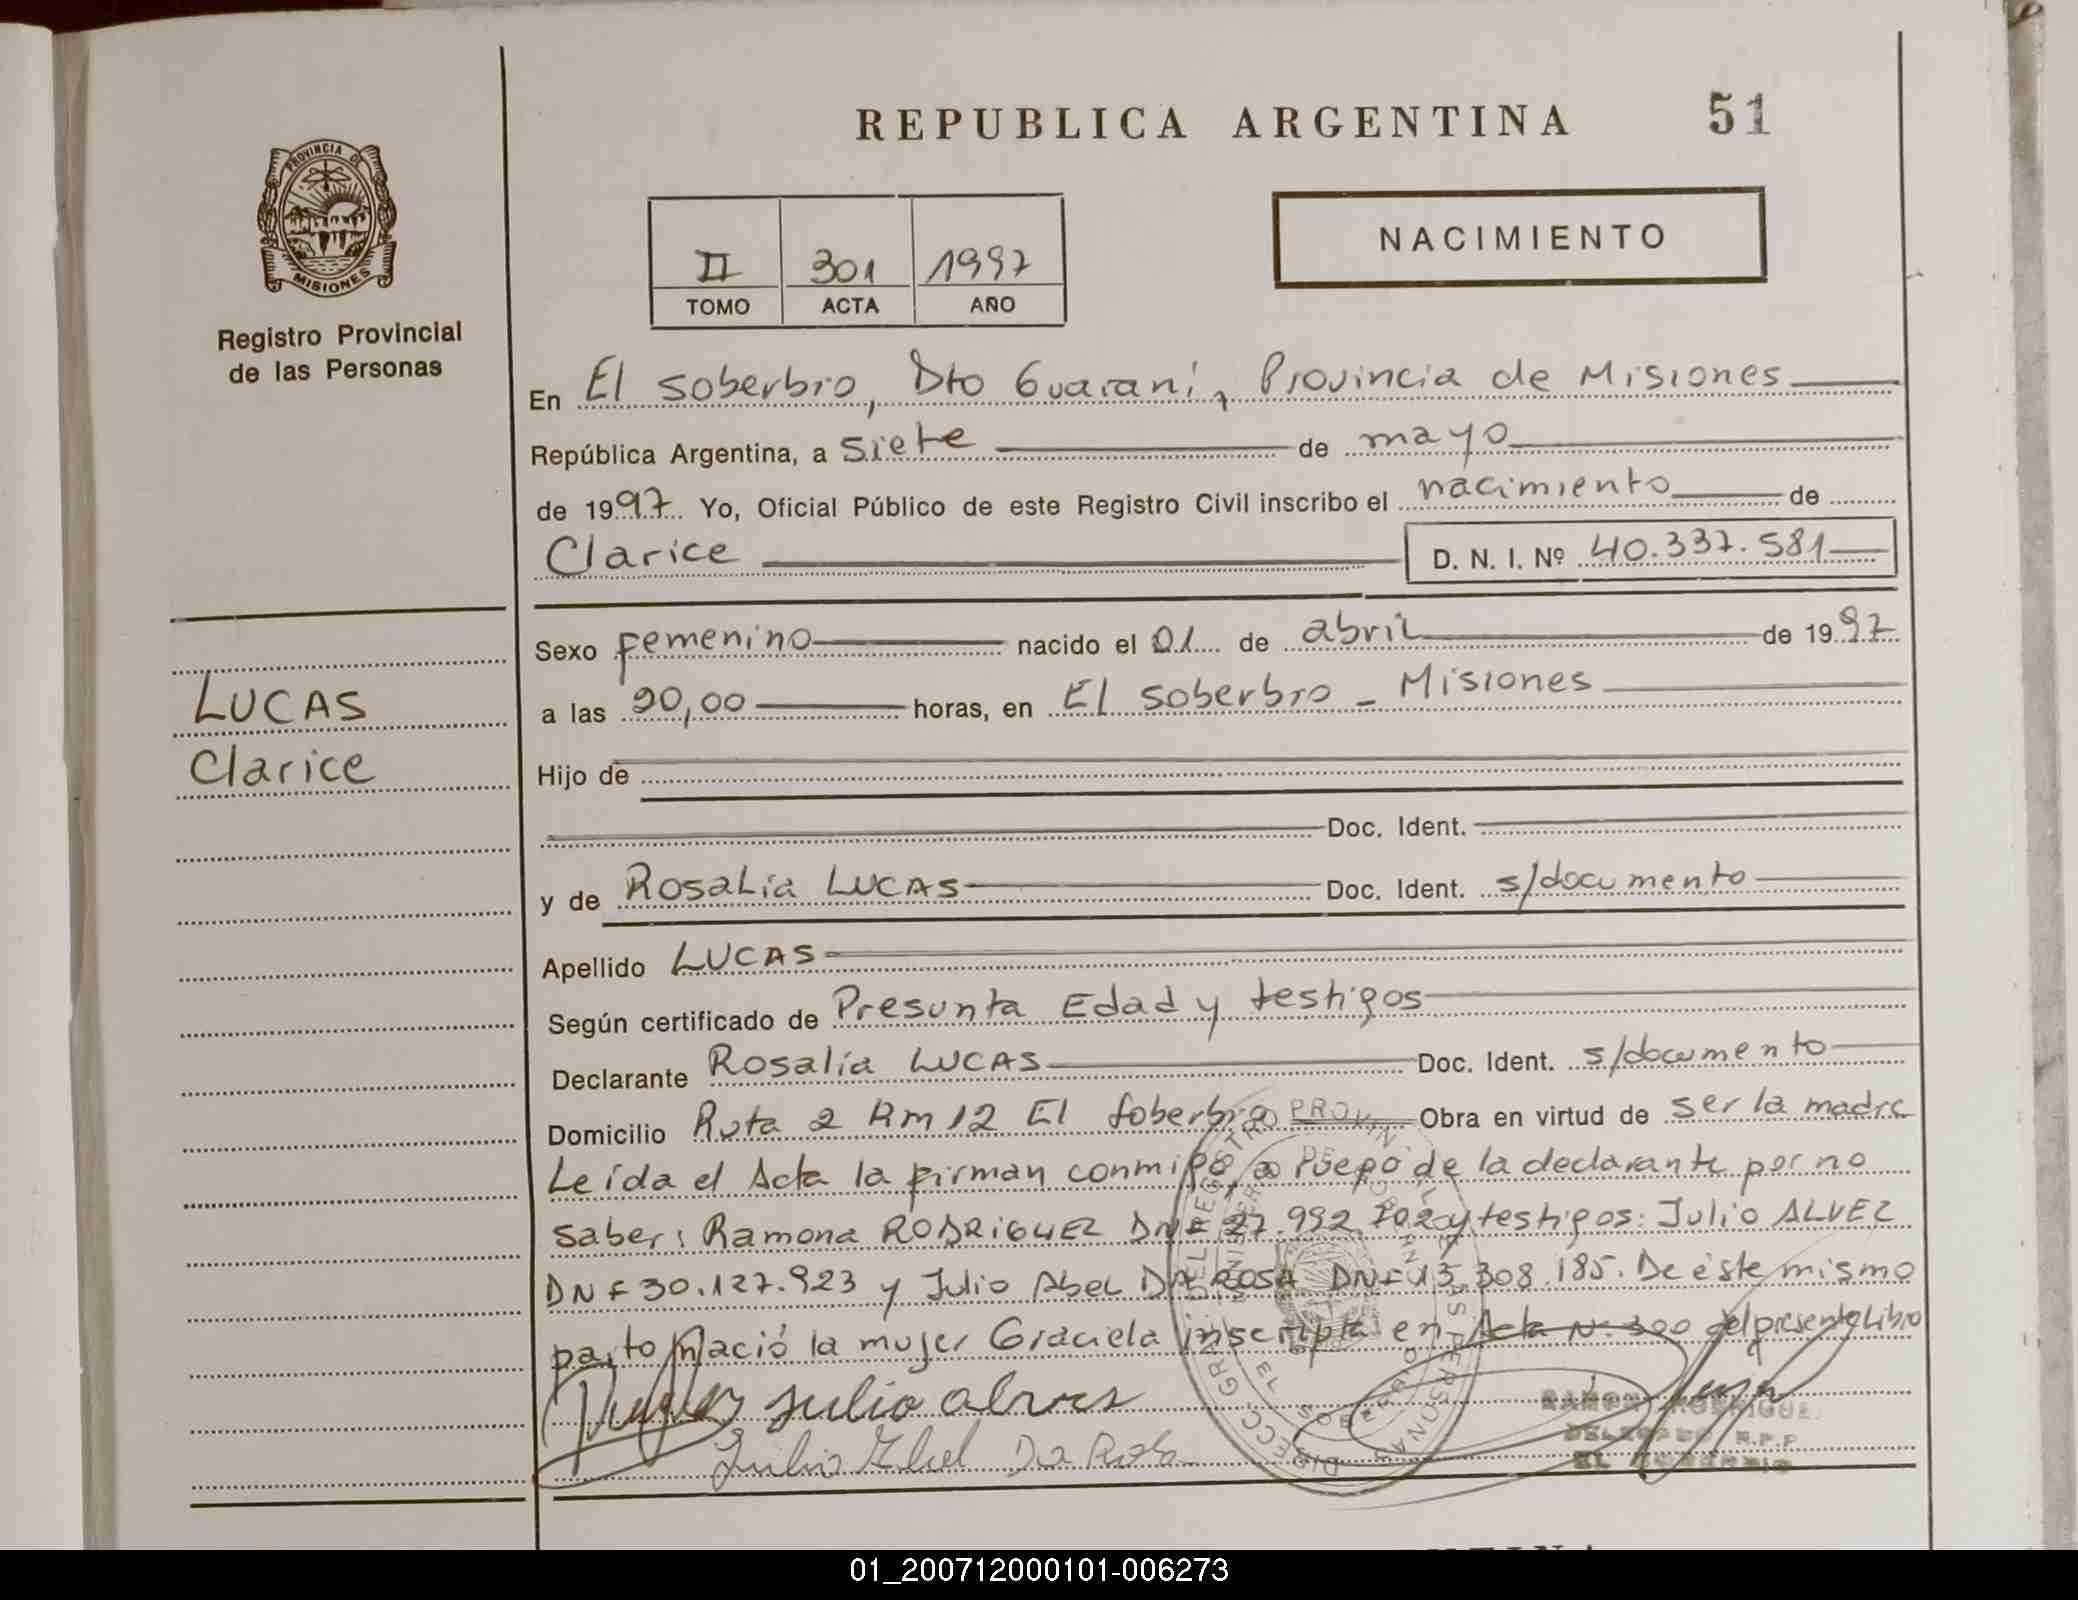 REPUBLICA ARGENTINA 51
PROVINCIA DE
MISIONES
Registro Provincial
de las Personas
II 301 1997
TOMO ACTA AÑO
NACIMIENTO
En El Soberbio, Dto Guaraní, Provincia de Misiones
República Argentina, a Siete de mayo
de 1997 Yo, Oficial Público de este Registro Civil inscribo el nacimiento de
Clarice D. N. I. Nº 40.337.581
Sexo femenino nacido el 01 de abril de 1997
a las 20,00 horas, en El Soberbio - Misiones
LUCAS
Clarice
Hijo de
Doc. Ident.
y de Rosalia LUCAS Doc. Ident. s/documento
Apellido LUCAS
Según certificado de Presunta Edad y testigos
Declarante Rosalía LUCAS Doc. Ident. s/documento
Domicilio Ruta 2 Km 12 El Soberbio Obra en virtud de ser la madre
Leída el Acta la firman conmigo, a ruego de la declarante por no
saber: Ramona RODRIGUEZ DNI 27.992 y testigos: Julio ALVEZ
DNI 30.127.923 y Julio Abel DA ROSA DNI 13.308.185. De éste mismo
parto nació la mujer Graciela inscripta en Acta Nº 300 del presente Libro
Julio alves
Julio Abel Da Rosa
DIRECC. GRAL. DEL REGISTRO PROVINCIAL DE LAS PERSONAS
EL SOBERBIO
RAMON RODRIGUEZ
DELEGADO R.P.P
EL SOBERBIO
01_200712000101-006273